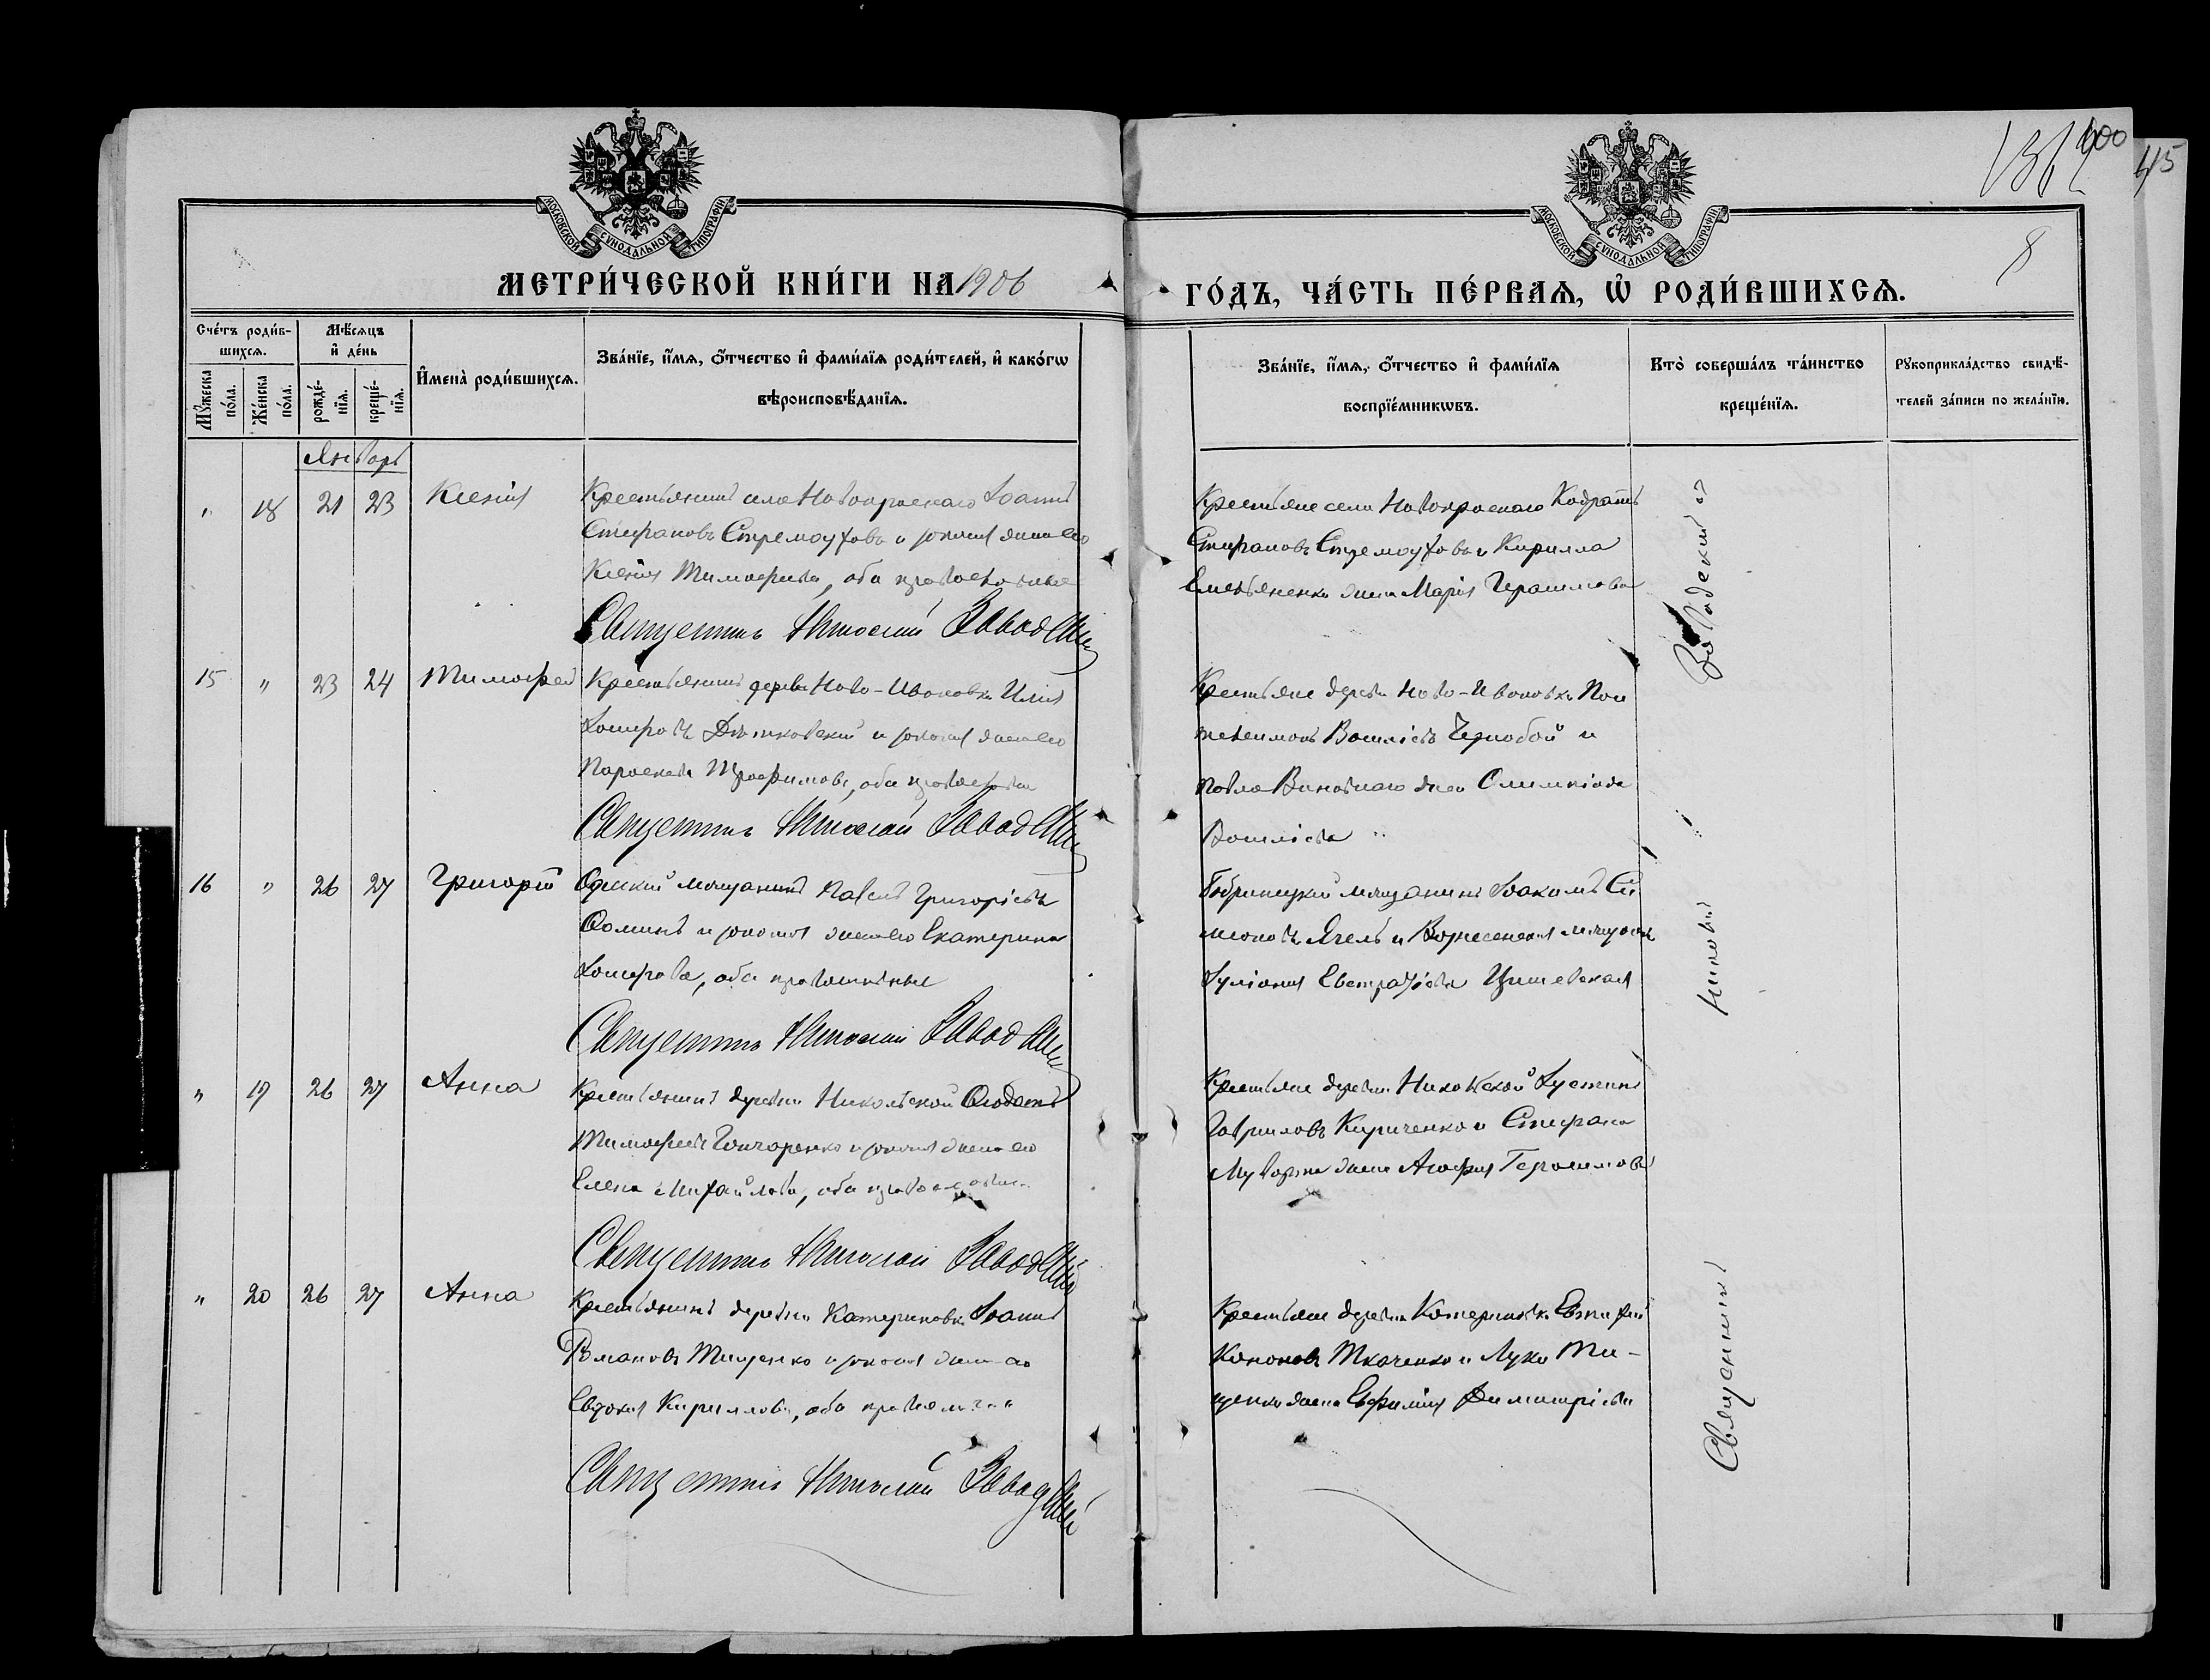 400
45
8
МОСКОВСКОЙ СѴНОДАЛЬНОЙ ТИПОГРАФІИ
МОСКОВСКОЙ СѴНОДАЛЬНОЙ ТИПОГРАФІИ
МЕТРИ́ЧЕСКОЙ КНИ́ГИ НА 1906
ГО́ДЪ, ЧА́СТЬ ПЕ́РВАѦ, Ѡ҆ РОДИ́ВШИХСѦ.
Сче́тъ роди́в-
шихсѧ.
Мꙋ́жеска по́ла.
Же́нска по́ла.
Мѣ́сѧцъ
и҆ де́нь
рожде́-
нїѧ.
креще́-
нїѧ.
И҆мена̀ роди́вшихсѧ.
Зва́нїе, и҆́мѧ, ѻ҆́тчество и҆ фами́лїѧ роди́телей, и҆ како́гѡ
вѣроисповѣ́данїѧ.
Зва́нїе, и҆́мѧ, ѻ҆́тчество и҆ фами́лїѧ
воспрїе́мникѡвъ.
Кто̀ соверша́лъ та́инство
креще́нїѧ.
Рꙋкоприкла́дство свидѣ́-
телей за́писи по жела́нїю.
Январь
" 18 21 23 Ксенія
Крестьянинъ села Новокраснаго Іоаннъ
Стефановъ Стремоуховъ и законная жена его
Ксенія Тимофеева, оба православные
Священникъ Николай Завадскій
Крестьяне села Новокраснаго Кодратъ
Стефановъ Стремоуховъ и Кирилла
Емельяненка жена Марія Герасимова
15 " 23 24 Тимофей
Крестьянинъ деревни Ново-Ивановки Илія
Іосифовъ и законная жена его
Параскева Трофимова, оба православные
Священникъ Николай Завадскій
Крестьяне деревни Ново-Ивановки Пан
телеимонъ Василіевъ Чернобой и
Павла жена Олимпіада
Василіева "
16 " 26 27 Григорій
Одесскій мѣщанинъ Григоріевъ
Ѳоминъ и законная жена его Екатерина
Іосифова, оба православные
Священникъ Николай Завадскій
Бобринецкій мѣщанинъ Іоакимъ Си
меоновъ и Вознесенская мѣщанка
Іуліанія Евстратіева
" 19 26 27 Анна
Крестьянинъ деревни Никольской Ѳеодотъ
Тимофеевъ Гончаренко и законная жена его
Елена Михайлова, оба православные
Священникъ Николай Завадскій
Крестьяне деревни Никольской Іустинъ
Гавриловъ Кириченко и Стефана
жена Агафія Герасимова
" 20 26 27 Анна
Крестьянинъ деревни Катериновки Іоаннъ
Романовъ Тищенко и законная жена его
Евдокія Кириллова, оба православные
Священникъ Николай Завадскій
Крестьяне деревни Катериновки Евтихій
Кононовъ Ткаченко и Луки Ти-
щенко жена Евфимія Димитріева
Священникъ Николай Завадскій